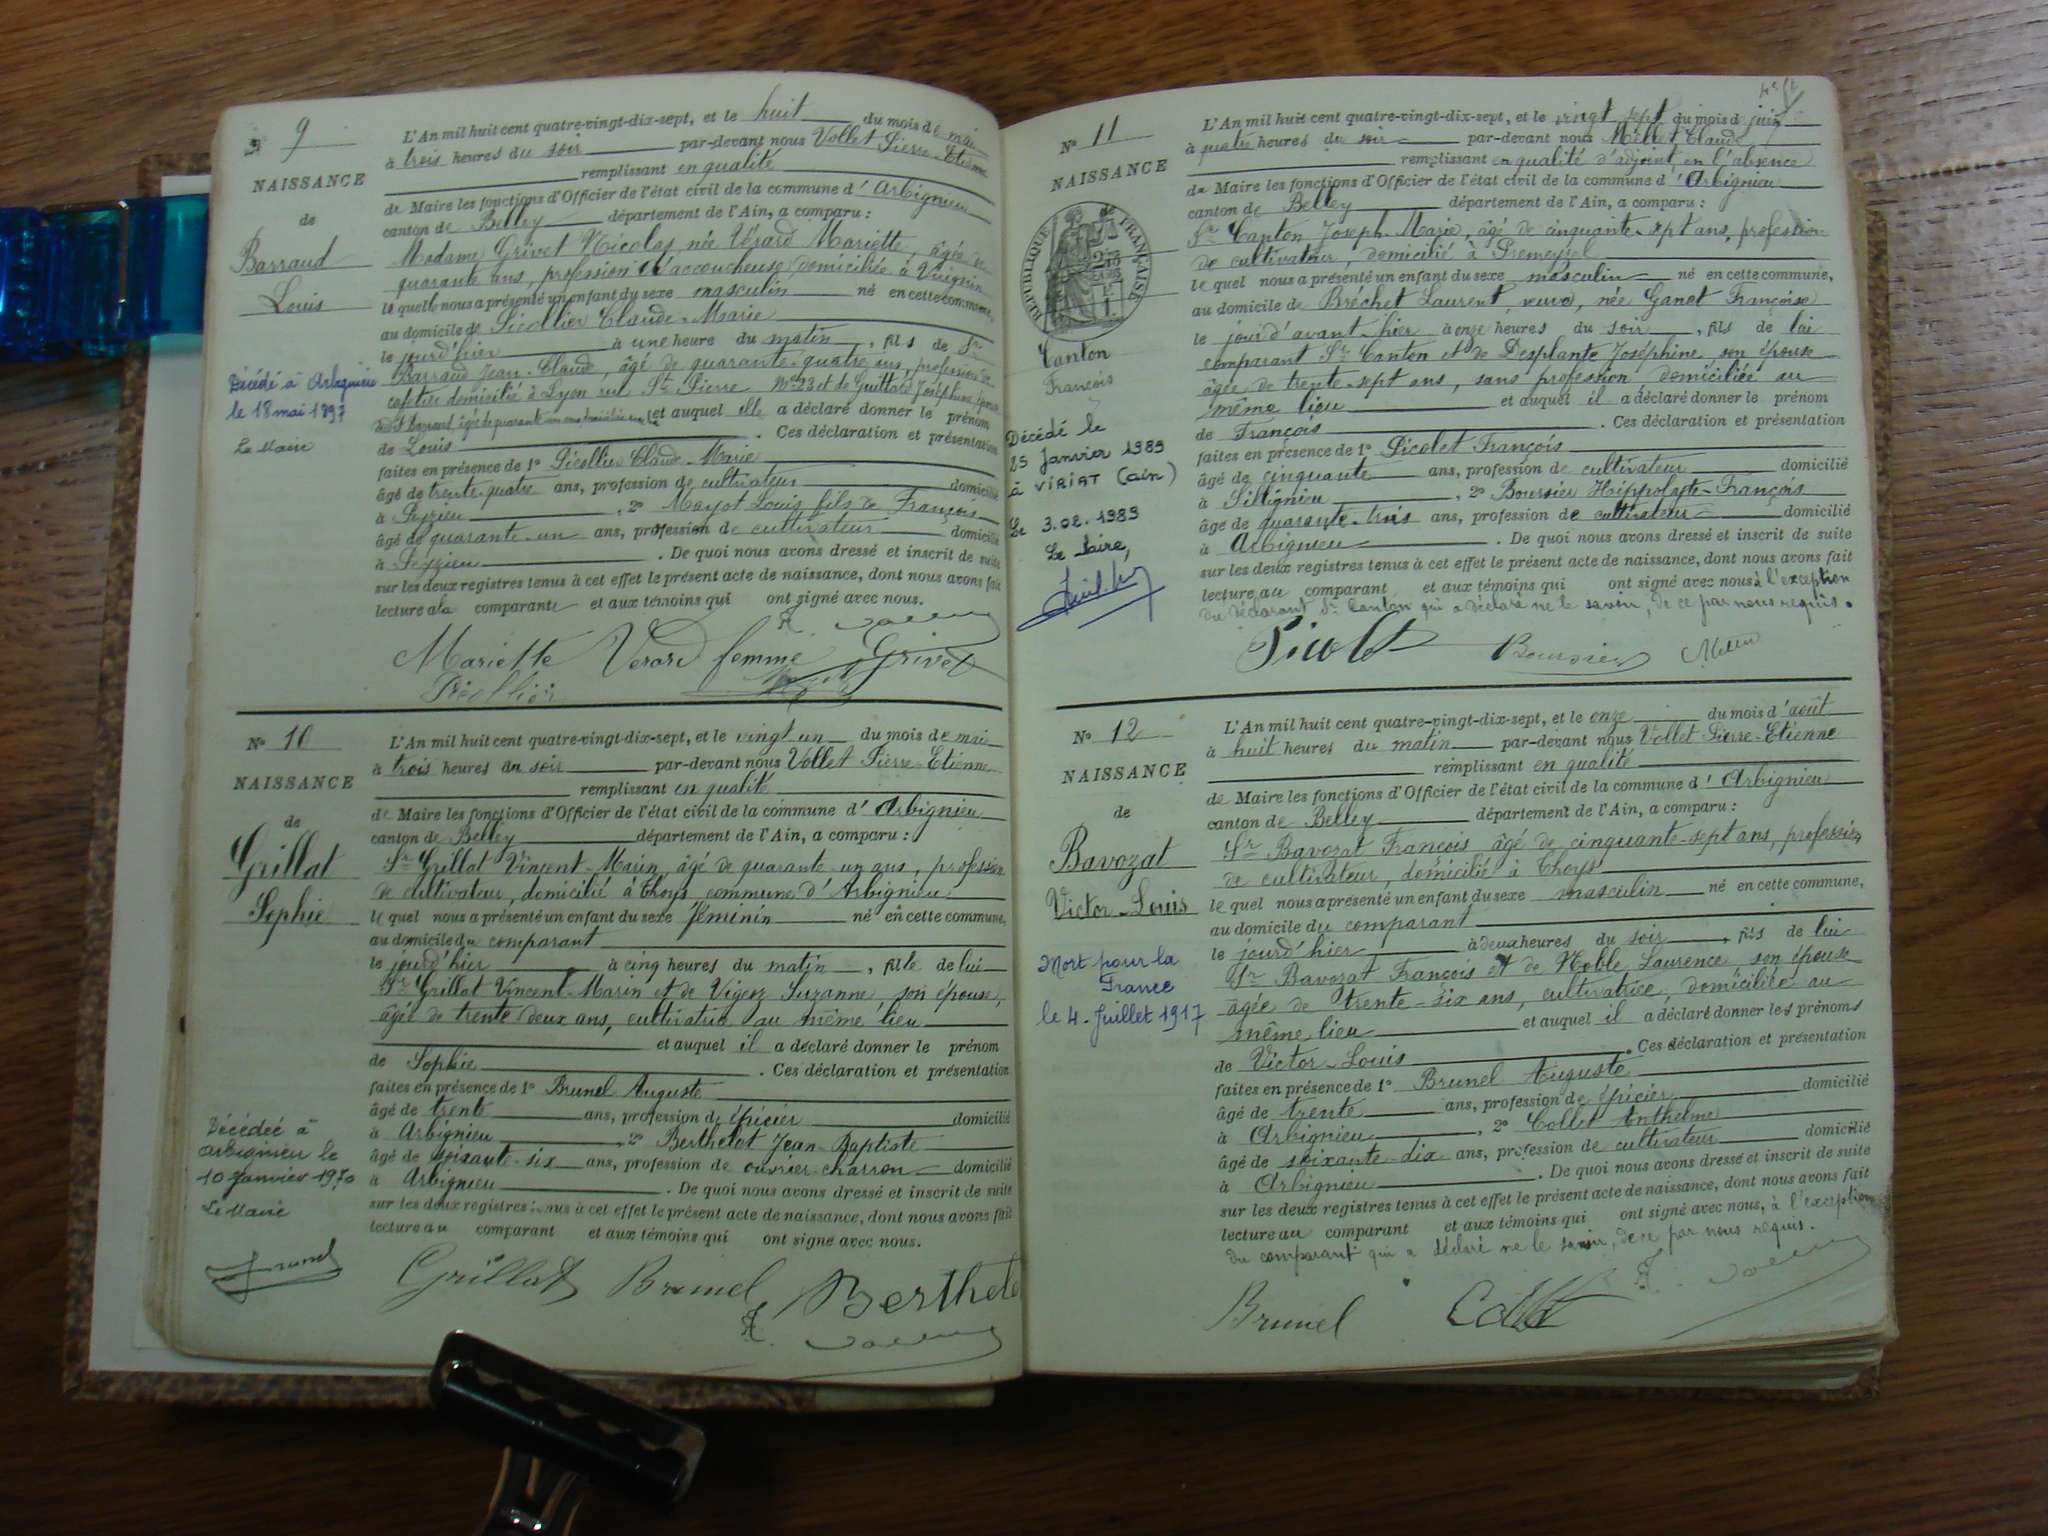 N° 9
NAISSANCE
de
Barraud
Louis
Décédé à Arbignieu
le 18 mai 1897
Le Maire
L'An mil huit cent quatre-vingt-dix-sept, et le huit du mois de mai
à trois heures du soir par-devant nous Vollet Pierre-Etienne
remplissant en qualité
de Maire les fonctions d'Officier de l'état civil de la commune d'Arbignieu
canton de Belley département de l'Ain, a comparu :
Madame Grivet Nicolas, née Vérard Mariette, âgée de
quarante ans, profession d'accoucheuse, domiciliée à Virignin
laquelle nous a présenté un enfant du sexe masculin né en cette commune,
au domicile de Picollier Claude-Marie
le jourd'hier à une heure du matin, fils de Sr
Barraud Jean-Claude, âgé de quarante-quatre ans, profession de
domicilié à Lyon rue St Pierre N° 23 et de Guittard Joséphine épouse
et auquel elle a déclaré donner le prénom
de Louis. Ces déclaration et présentation
faites en présence de 1° Picollier Claude-Marie
âgé de trente-quatre ans, profession de cultivateur domicilié
à Peyzieu, 2° Mayot Louis fils de François
âgé de quarante-un ans, profession de cultivateur domicilié
à Peyzieu. De quoi nous avons dressé et inscrit de suite
sur les deux registres tenus à cet effet le présent acte de naissance, dont nous avons fait
lecture à la comparante et aux témoins qui ont signé avec nous.
Mariette Verard femme Grivet
Picollier
N° 10
NAISSANCE
de
Grillat
Sophie
Décédée à
Arbignieu le
10 janvier 1970
Le Maire
Brunel
L'An mil huit cent quatre-vingt-dix-sept, et le vingt un du mois de mai
à trois heures du soir par-devant nous Vollet Pierre-Etienne
remplissant en qualité
de Maire les fonctions d'Officier de l'état civil de la commune d'Arbignieu
canton de Belley département de l'Ain, a comparu :
Sr Grillat Vincent-Marin, âgé de quarante un ans, profession
de cultivateur, domicilié à Thoys commune d'Arbignieu
lequel nous a présenté un enfant du sexe féminin né en cette commune,
au domicile du comparant
le jourd'hier à cinq heures du matin, fille de lui
Sr Grillat Vincent-Marin et de Vigerz Suzanne, son épouse,
âgée de trente-deux ans, cultivatrice au même lieu
et auquel il a déclaré donner le prénom
de Sophie. Ces déclaration et présentation
faites en présence de 1° Brunel Auguste
âgé de trente ans, profession de épicier domicilié
à Arbignieu, 2° Berthelot Jean-Baptiste
âgé de soixante-six ans, profession de ouvrier charron domicilié
à Arbignieu. De quoi nous avons dressé et inscrit de suite
sur les deux registres tenus à cet effet le présent acte de naissance, dont nous avons fait
lecture au comparant et aux témoins qui ont signé avec nous.
Grillat Brunel Berthelo
N° 11
NAISSANCE
RÉPUBLIQUE FRANÇAISE
Canton
François
Décédé le
25 Janvier 1989
à VIRIAT (ain)
Le 3.02.1989
Le Maire,
L'An mil huit cent quatre-vingt-dix-sept, et le vingt sept du mois de juin
à quatre heures du soir par-devant nous Mellet Claude
remplissant en qualité d'adjoint, en l'absence
du Maire les fonctions d'Officier de l'état civil de la commune d'Arbignieu
canton de Belley département de l'Ain, a comparu :
Sr Canton Joseph-Marie, âgé de cinquante-sept ans, profession
de cultivateur, domicilié à Premeyzel
lequel nous a présenté un enfant du sexe masculin né en cette commune,
au domicile de Bréchet Laurent veuve, née Ganet Françoise
le jour d'avant-hier à onze heures du soir, fils de lui
comparant Sr Canton et de Desplante Joséphine, son épouse
âgée de trente-sept ans, sans profession domiciliée au
même lieu et auquel il a déclaré donner le prénom
de François. Ces déclaration et présentation
faites en présence de 1° Picolet François
âgé de cinquante ans, profession de cultivateur domicilié
à Sillignieu, 2° Boursier Hippolyte-François
âgé de quarante-trois ans, profession de cultivateur domicilié
à Arbignieu. De quoi nous avons dressé et inscrit de suite
sur les deux registres tenus à cet effet le présent acte de naissance, dont nous avons fait
lecture au comparant et aux témoins qui ont signé avec nous à l'exception
du déclarant Sr Canton qui a déclaré ne le savoir, de ce par nous requis.
Picolet Boursier Mellet
N° 12
NAISSANCE
de
Bavozat
Victor-Louis
Mort pour la
France
le 4 Juillet 1917
L'An mil huit cent quatre-vingt-dix-sept, et le onze du mois d'août
à huit heures du matin par-devant nous Vollet Pierre-Etienne
remplissant en qualité
de Maire les fonctions d'Officier de l'état civil de la commune d'Arbignieu
canton de Belley département de l'Ain, a comparu :
Sr Bavozat François âgé de cinquante-sept ans, profession
de cultivateur, domicilié à Thoys
lequel nous a présenté un enfant du sexe masculin né en cette commune,
au domicile du comparant
le jourd'hier à deux heures du soir, fils de lui
Sr Bavozat François et de Noble Laurence son épouse
âgée de trente-six ans, cultivatrice, domiciliée au
même lieu et auquel il a déclaré donner les prénoms
de Victor-Louis. Ces déclaration et présentation
faites en présence de 1° Brunel Auguste
âgé de trente ans, profession de épicier domicilié
à Arbignieu, 2° Collet Anthelme
âgé de soixante-dix ans, profession de cultivateur domicilié
à Arbignieu. De quoi nous avons dressé et inscrit de suite
sur les deux registres tenus à cet effet le présent acte de naissance, dont nous avons fait
lecture au comparant et aux témoins qui ont signé avec nous, à l'exception
du comparant qui a déclaré ne le savoir, de ce par nous requis.
Brunel Collet